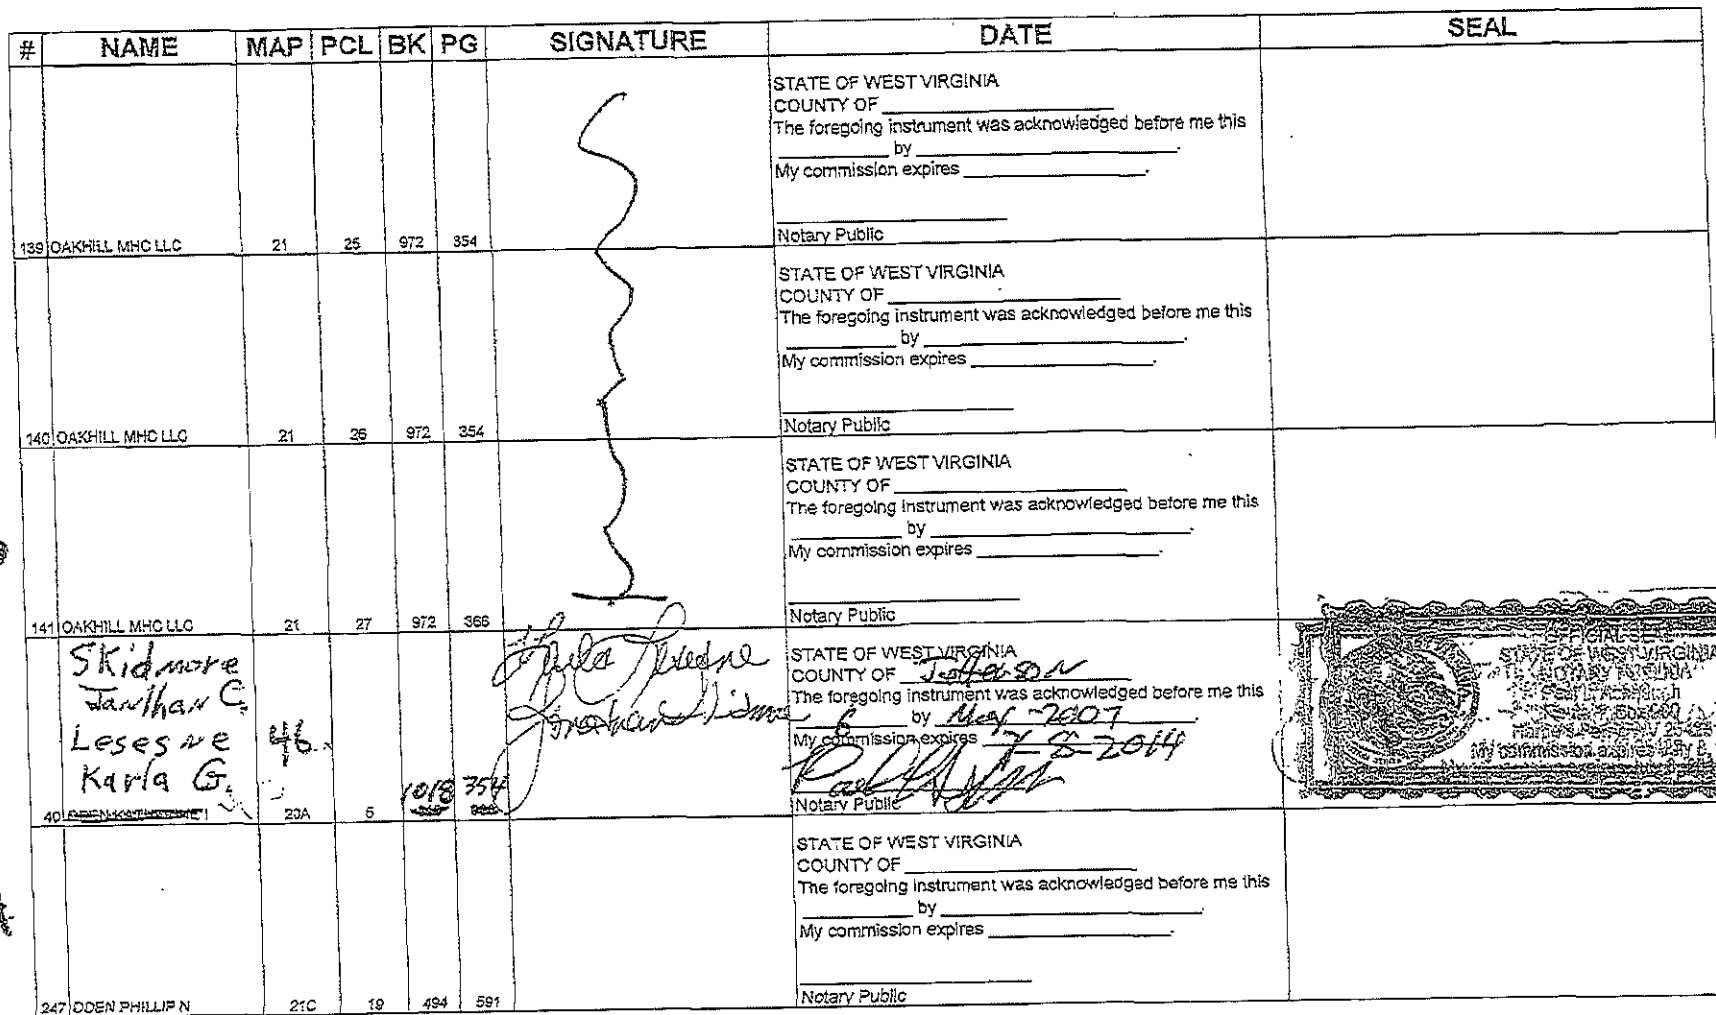 # NAME MAP PCL BK PG SIGNATURE DATE SEAL
STATE OF WEST VIRGINIA
COUNTY OF
The foregoing instrument was acknowledged before me this
by
My commission expires
Notary Public
139 OAKHILL MHC LLC 21 25 972 354
STATE OF WEST VIRGINIA
COUNTY OF
The foregoing instrument was acknowledged before me this
by
My commission expires
Notary Public
140 OAKHILL MHC LLC 21 26 972 354
STATE OF WEST VIRGINIA
COUNTY OF
The foregoing instrument was acknowledged before me this
by
My commission expires
Notary Public
141 OAKHILL MHC LLC 21 27 972 366
Skidmore
Leses ne 46
Karla G.
1018 354
40 20A 5
Karla Lesesne
Jonathan Skidmore
STATE OF WEST VIRGINIA
COUNTY OF Jefferson
The foregoing instrument was acknowledged before me this
6 by May - 2007
My commission expires 7-8-2014
Notary Public
OFFICIAL SEAL
STATE OF WEST VIRGINIA
NOTARY PUBLIC
My commission expires July 8
STATE OF WEST VIRGINIA
COUNTY OF
The foregoing instrument was acknowledged before me this
by
My commission expires
Notary Public
247 ODEN PHILLIP N 21C 19 494 591